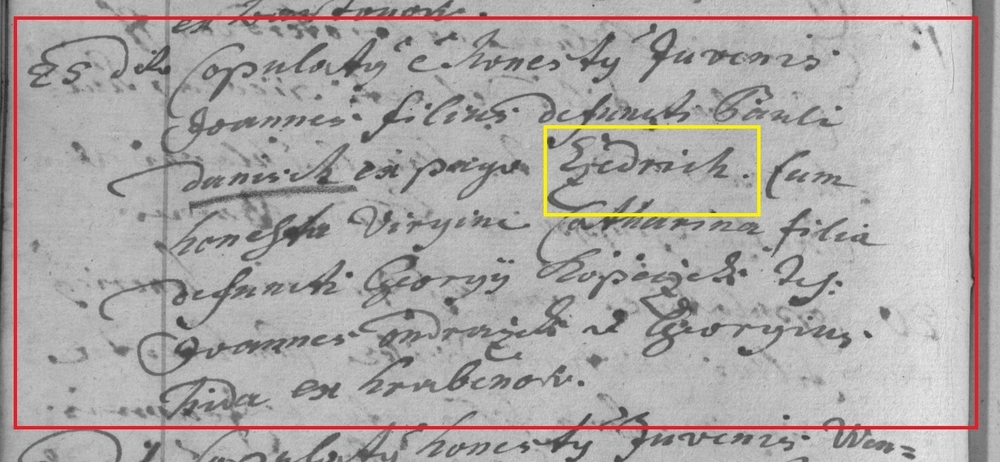 25 dito Copulatq e honestq Juvenis
Joannes filius defuncti Pauli
danisch ex pago Ziedrich. Cum
honesta Virgine Catharina filia
defuncti Georgÿ Test:
Joannes ondraczek et Georgius
ex hrabenow.
Copulatq honestq Juvenis Wen=